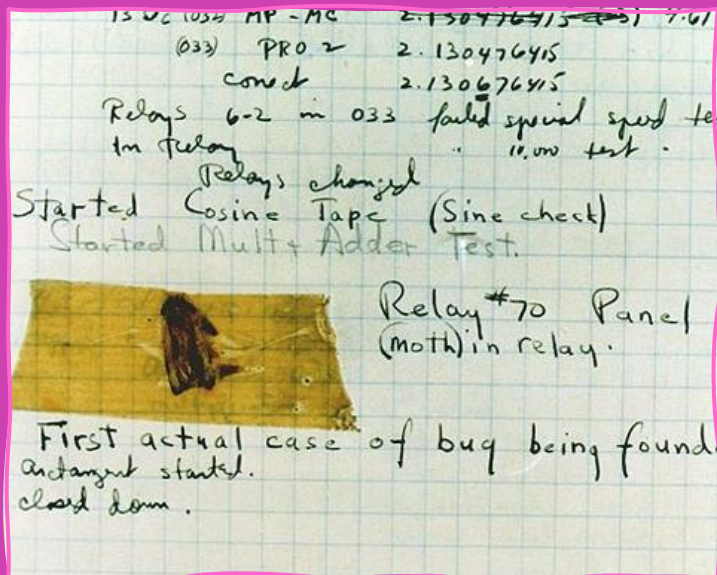 13 UC (032) MP - MC 2.130476415
(033) PRO 2 2.130476415
conect 2.130676415
Relays 6-2 in 033 failed special speed te
In Relay " 10,000 test .
Relays changed
Started Cosine Tape (Sine check)
Started Mult + Adder Test.
Relay #70 Panel
(moth) in relay.
First actual case of bug being found.
arctangent started.
closed down.